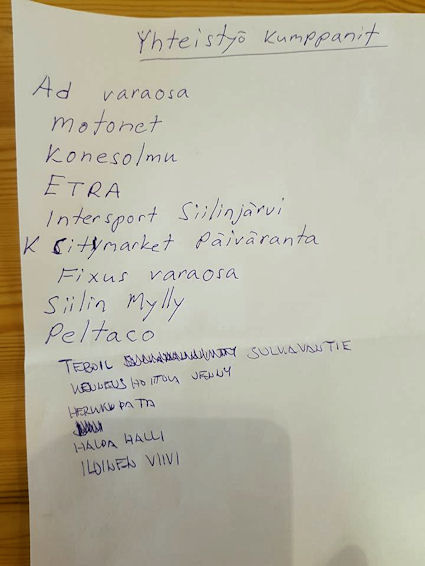 Yhteistyö kumppanit
Ad varaosa
Motonet
Konesolmu
ETRA
Intersport Siilinjärvi
K Citymarket Päiväranta
Fixus varaosa
Siilin Mylly
Peltaco
TEBOIL SULKAVANTIE
KENNELHOITOLA JENNY
HERKKUPATA
HALPA HALLI
ILOINEN VIIVI